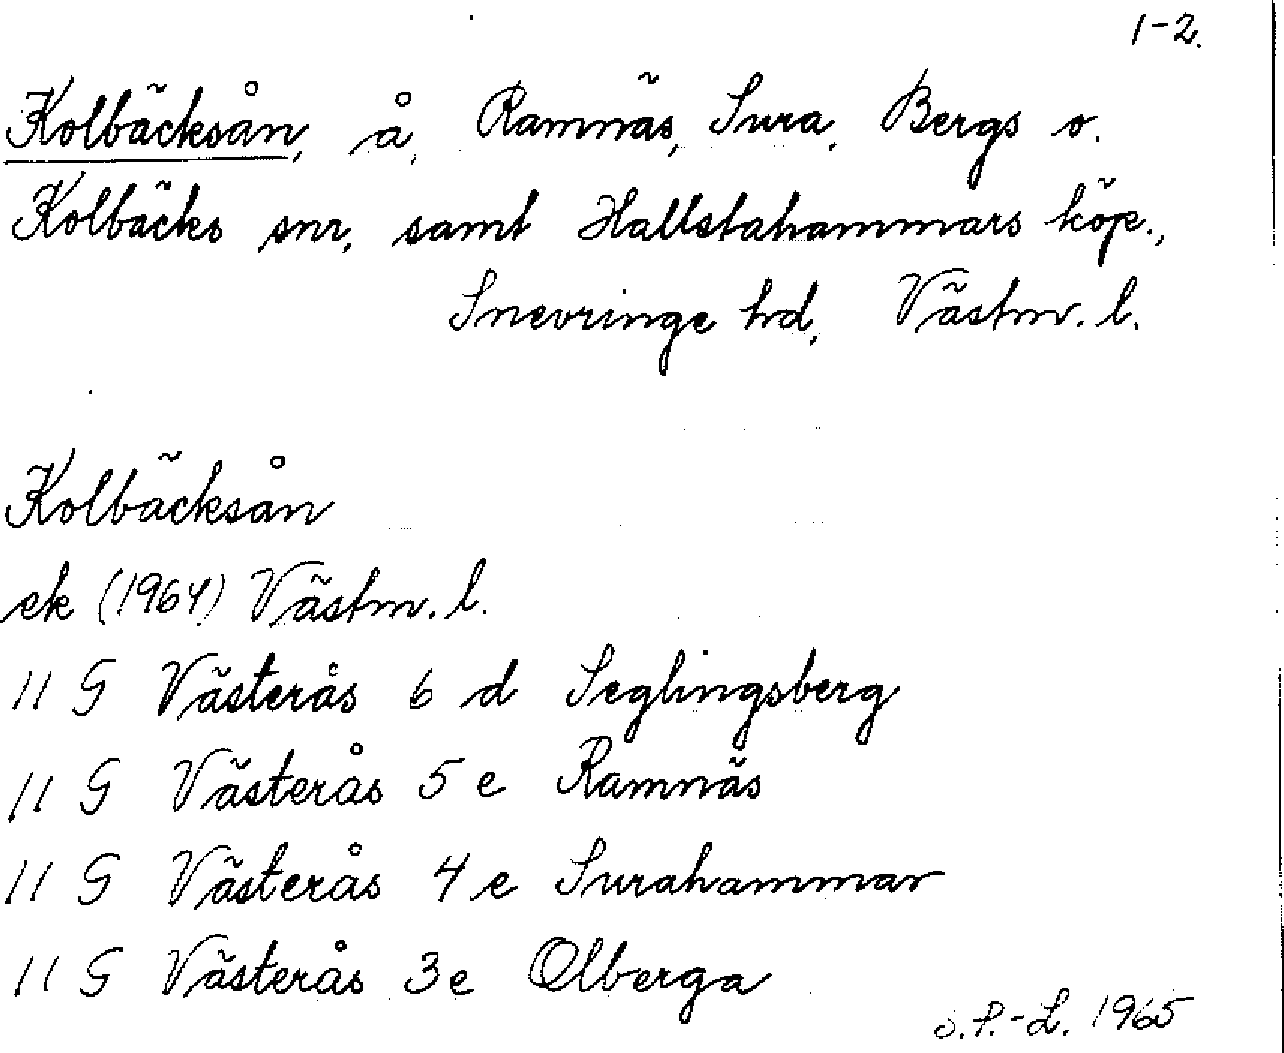 1-2.
Kolbäcksån, å, Ramnäs, Sura, Bergs o.
Kolbäcks snr, samt Hallstahammars köp.,
Snevringe hd, Västm. l.
Kolbäcksån
ek (1964) Västm. l.
11 G Västerås 6 d Seglingsberg
11 G Västerås 5 e Ramnäs
11 G Västerås 4 e Surahammar
11 G Västerås 3 e Olberga
S.P.-L. 1965